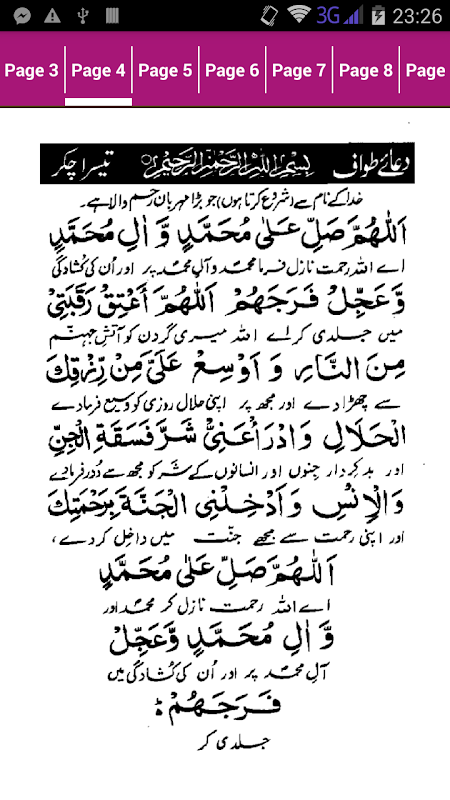 3G 23:26
Page 3 Page 4 Page 5 Page 6 Page 7 Page 8 Page
دعائے طواف بِسْمِ اللهِ الرَّحْمٰنِ الرَّحِيْمِ تیسرا چکر
خدا کے نام سے (شروع کرتا ہوں) جو بڑا مہربان رحم والا ہے۔
اَللّٰهُمَّ صَلِّ عَلٰى مُحَمَّدٍ وَّ اٰلِ مُحَمَّدٍ
اے اللہ رحمت نازل فرما محمد و آلِ محمد پر اور اُن کی کُشادگی
وَّعَجِّلْ فَرَجَهُمْ اَللّٰهُمَّ اَعْتِقْ رَقَبَتِيْ
میں جلدی کر اے اللہ میری گردن کو آتشِ جہنّم
مِنَ النَّارِ وَ اَوْسِعْ عَلَيَّ مِنْ رِّزْقِكَ
سے چھڑا دے اور مجھ پر اپنی حلال روزی کو وسیع فرما دے
الْحَلَالِ وَادْرَاْ عَنِّيْ شَرَّ فَسَقَةِ الْجِنِّ
اور بد کردار جنوں اور انسانوں کے شر کو مجھ سے دُور فرما دے
وَالْاِنْسِ وَاَدْخِلْنِي الْجَنَّةَ بِرَحْمَتِكَ
اور اپنی رحمت سے مجھے جنّت میں داخِل کر دے،
اَللّٰهُمَّ صَلِّ عَلٰى مُحَمَّدٍ
اے اللہ رحمت نازل کر محمدؐ اور
وَّ اٰلِ مُحَمَّدٍ وَّعَجِّلْ
آلِ محمدؐ پر اور اُن کی کُشادگی میں
فَرَجَهُمْ:
جلدی کر